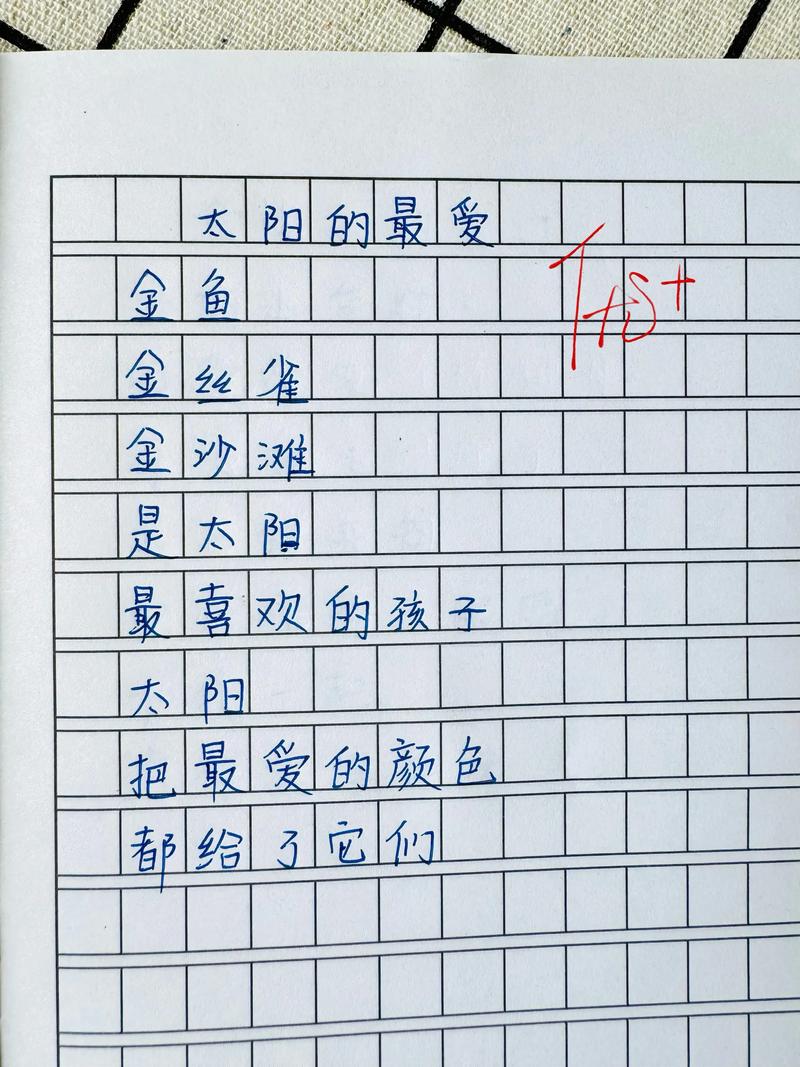 太阳的最爱
金鱼
金丝雀
金沙滩
是太阳
最喜欢的孩子
太阳
把最爱的颜色
都给了它们